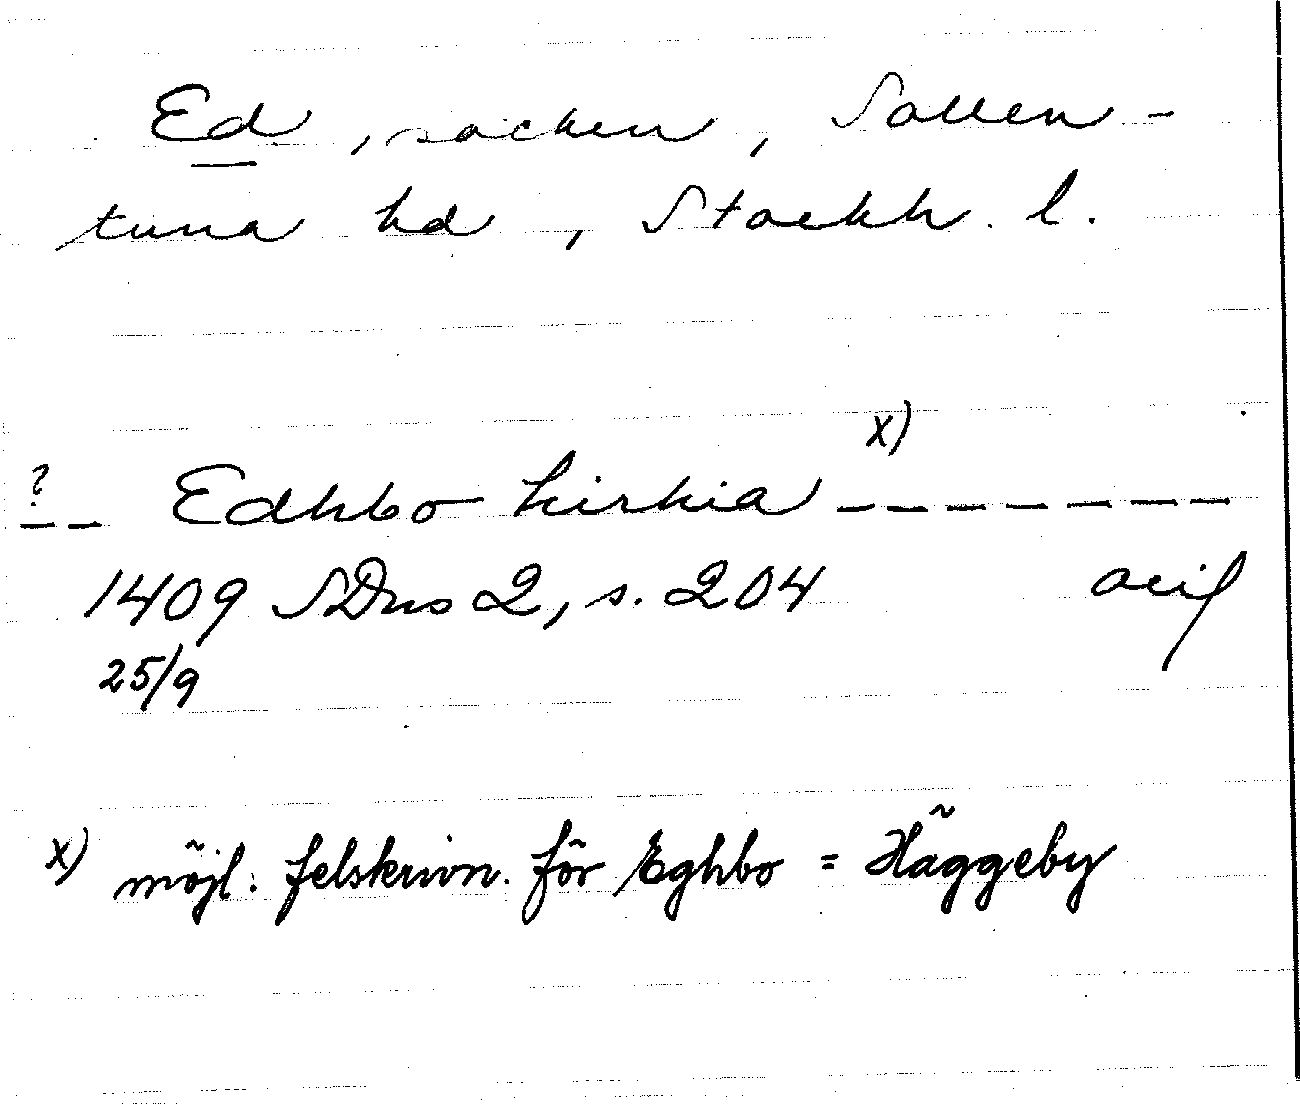 Ed, socken, Sollen-
tuna hd, Stockh. l.
x)
? -- Edhbo kirkia -------
1409 SDns 2, s. 204 avif
25/9
x) möjl. felskrivn. för Eghbo = Häggeby